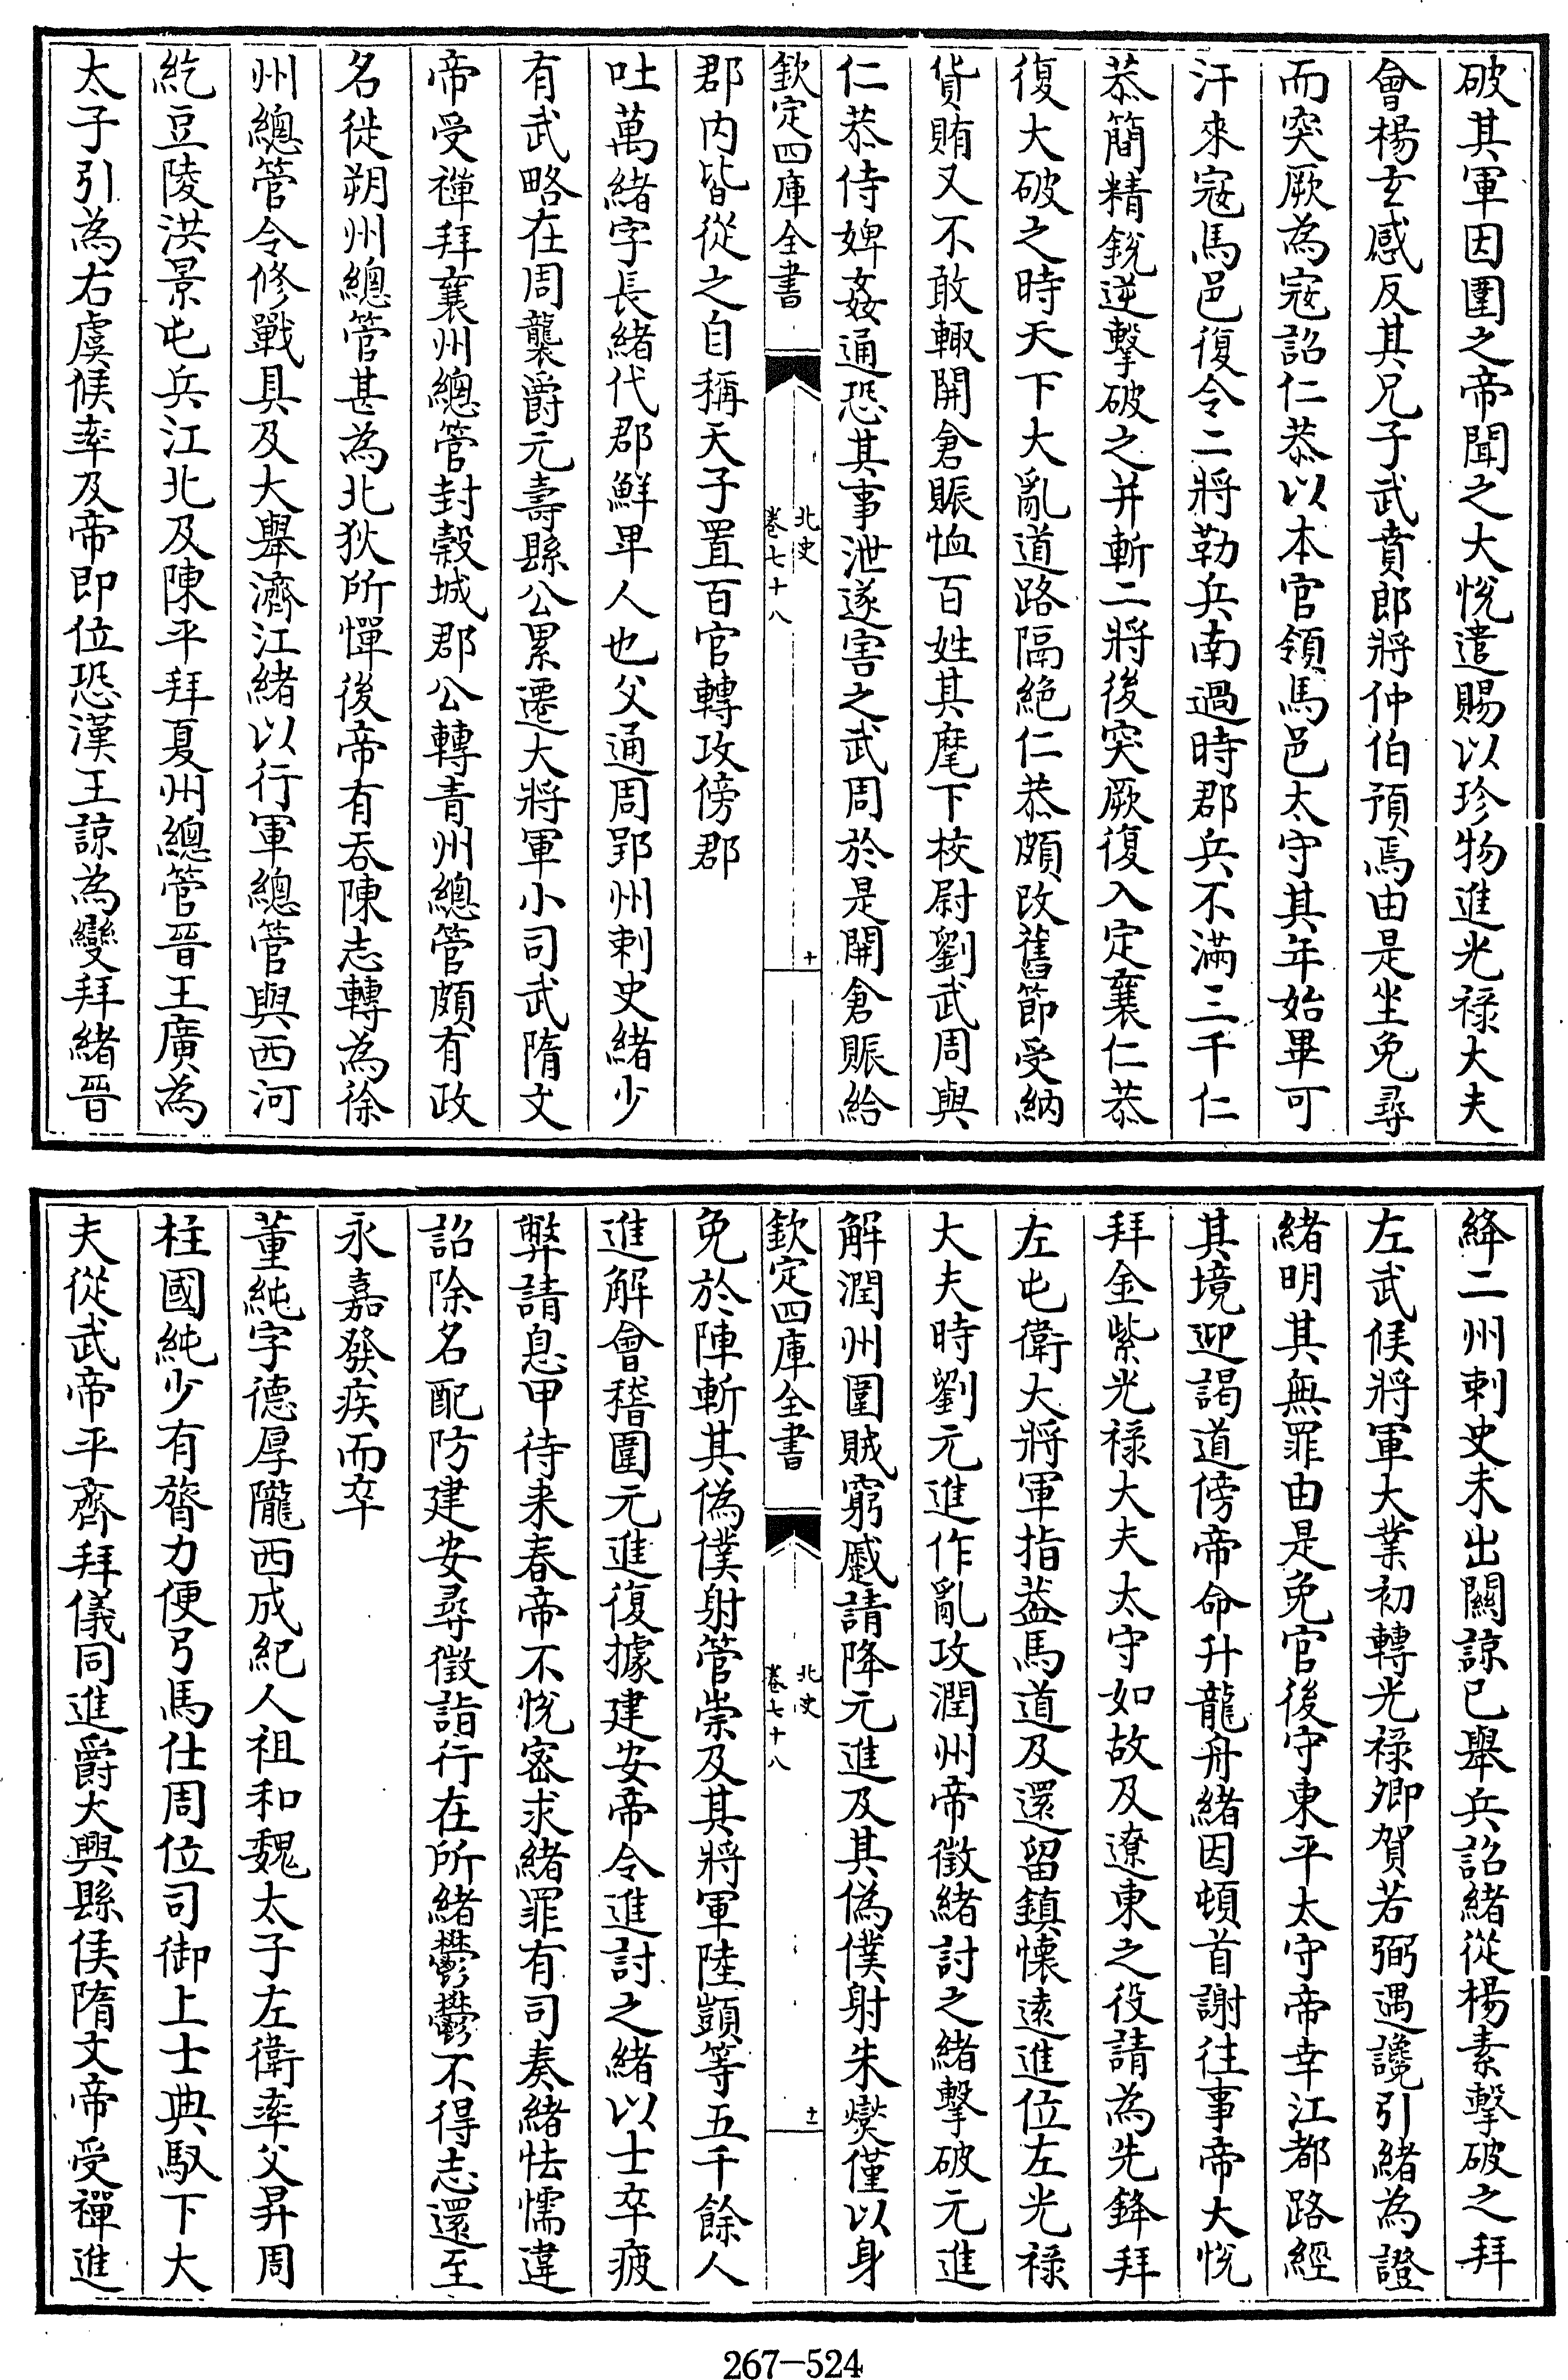 破其軍因圍之帝聞之大悅遣賜以珍物進光祿大夫
會楊玄感反其兄子武賁郎將仲伯預焉由是坐免尋
而突厥為寇詔仁恭以本官領馬邑太守其年始畢可
汗來寇馬邑復令二將勒兵南過時郡兵不滿三千仁
恭簡精銳逆擊破之并斬二將後突厥復入定襄仁恭
復大破之時天下大亂道路隔絕仁恭頗改舊節受納
貨賄又不敢輙開倉賑恤百姓其麾下校尉劉武周與
仁恭侍婢姦通恐其事泄遂害之武周於是開倉賑給
欽定四庫全書
北史
卷七十八
十
郡內皆從之自稱天子置百官轉攻傍郡
吐萬緒字長緒代郡鮮卑人也父通周郢州刺史緒少
有武略在周襲爵元壽縣公累遷大將軍小司武隋文
帝受禪拜襄州總管封穀城郡公轉青州總管頗有政
名徙朔州總管甚為北狄所憚後帝有吞陳志轉為徐
州總管令修戰具及大舉濟江緒以行軍總管與西河
紇豆陵洪景屯兵江北及陳平拜夏州總管晉王廣為
太子引為右虞候率及帝即位恐漢王諒為變拜緒晉
絳二州刺史未出關諒已舉兵詔緒從楊素擊破之拜
左武候將軍大業初轉光祿卿賀若弼遇讒引緒為證
緒明其無罪由是免官後守東平太守帝幸江都路經
其境迎謁道傍帝命升龍舟緒因頓首謝往事帝大悅
拜金紫光祿大夫太守如故及遼東之役請為先鋒拜
左屯衛大將軍指葢馬道及還留鎮懷遠進位左光祿
大夫時劉元進作亂攻潤州帝徵緒討之緒擊破元進
解潤州圍賊窮蹙請降元進及其偽僕射朱燮僅以身
欽定四庫全書
北史
卷七十八
十一
免於陣斬其偽僕射管崇及其將軍陸顗等五千餘人
進解會稽圍元進復據建安帝令進討之緒以士卒疲
弊請息甲待来春帝不悅密求緒罪有司奏緒怯懦違
詔除名配防建安尋徵詣行在所緒鬱鬱不得志還至
永嘉發疾而卒
董純字德厚隴西成紀人祖和魏太子左衛率父昇周
柱國純少有膂力便弓馬仕周位司御上士典馭下大
夫從武帝平齊拜儀同進爵大興縣侯隋文帝受禪進
267-524